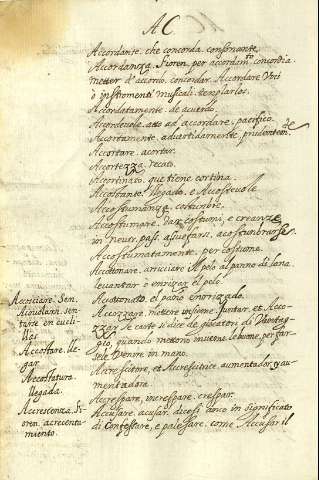 AC
Accordante. che concorda. consonante.
Accordanza. Fioren. per accordam.to concordia.
metter d'accordo. concordar. Accordare Voci
ò instromenti musicali. templarlos.
Accordatamente. de acuerdo.
Accordevole. atto ad accordare. pacifico.
Accortamente. advertidamente. prudentem.te
Accortare. acortar.
Accortezza. recato.
Accortinato. que tiene cortina.
Accostante. llegado, e Accostevole
Accostumanza. costumbre.
Accostumare. dar costumi, e creanze
in neutr. pass. assuefarsi. acostumbrarse.
Accostumatamente. per costume.
Accotonare. arricciare il pelo al panno di lana
levantar ò enrizar el pelo.
Accotonato. el paño enrizado.
Accozzare. mettere insieme. Juntar. et Accozzar
le carte si dice de giocatori di Vantaggio,
quando mettono insieme le buone, per farsele
Venire in mano.
Accrescitore, et Accrescitrice. aumentador, y aumentadora.
Accrespare, increspare. crespar.
Accusare. acusar. dicesi anco in significato
di Confessare, e palesare. come Accusar il
Accorciare. Sen.
Accostare. llegar.
Accostatura.
llegada.
Accrescenza. Fioren.
acrecentamiento.